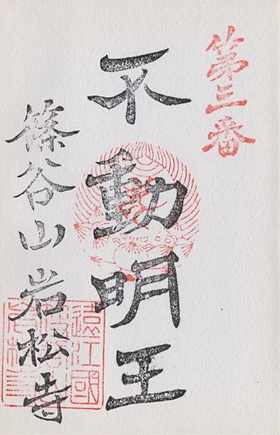 第三番
不動明王
篠谷山岩松寺
遠江國